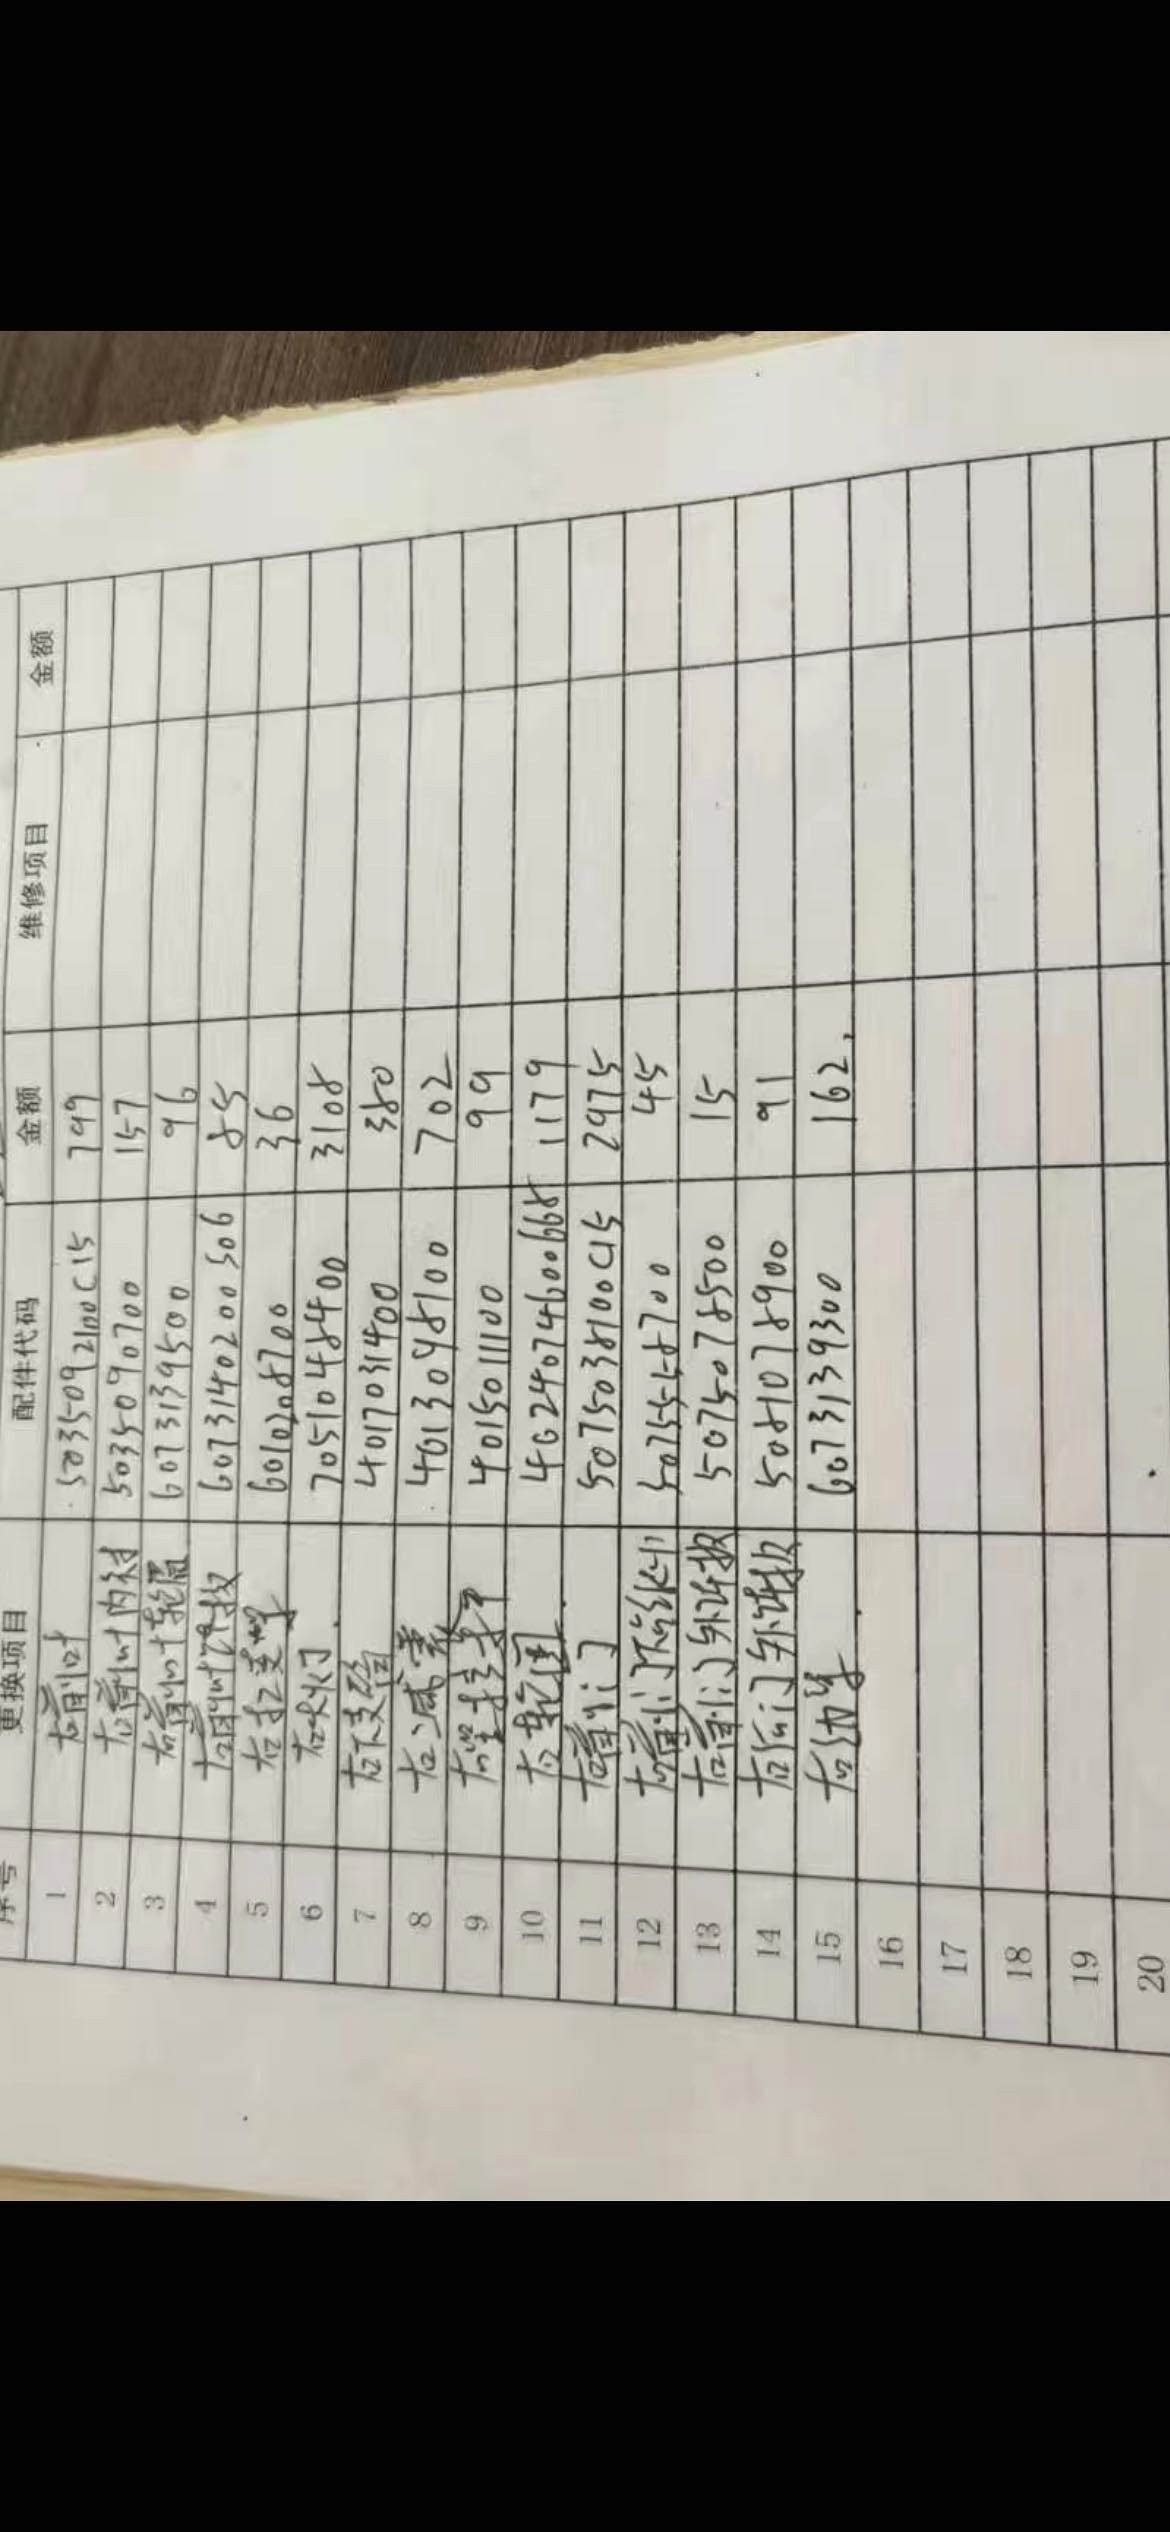 序号 更换项目 配件代码 金额 维修项目 金额
1 右前叶 5035092100C15 799
2 右前叶内衬 5035090700 157
3 右前叶轮眉 6073139500 96
4 右前叶饰板 6073140200506 85
5 右杠支架 6010208700 36
6 右大灯 7051048400 3108
7 右下支臂 4017031400 380
8 右减震 4013048100 702
9 4015011100 99
10 右轮圈 4024074600668 1179
11 右前门 5075038100C15 2975
12 右前门 5075558700 45
13 右前门外饰板 5075078500 15
14 右后门外饰板 5081078900 91
15 右边 6073139300 162
16
17
18
19
20